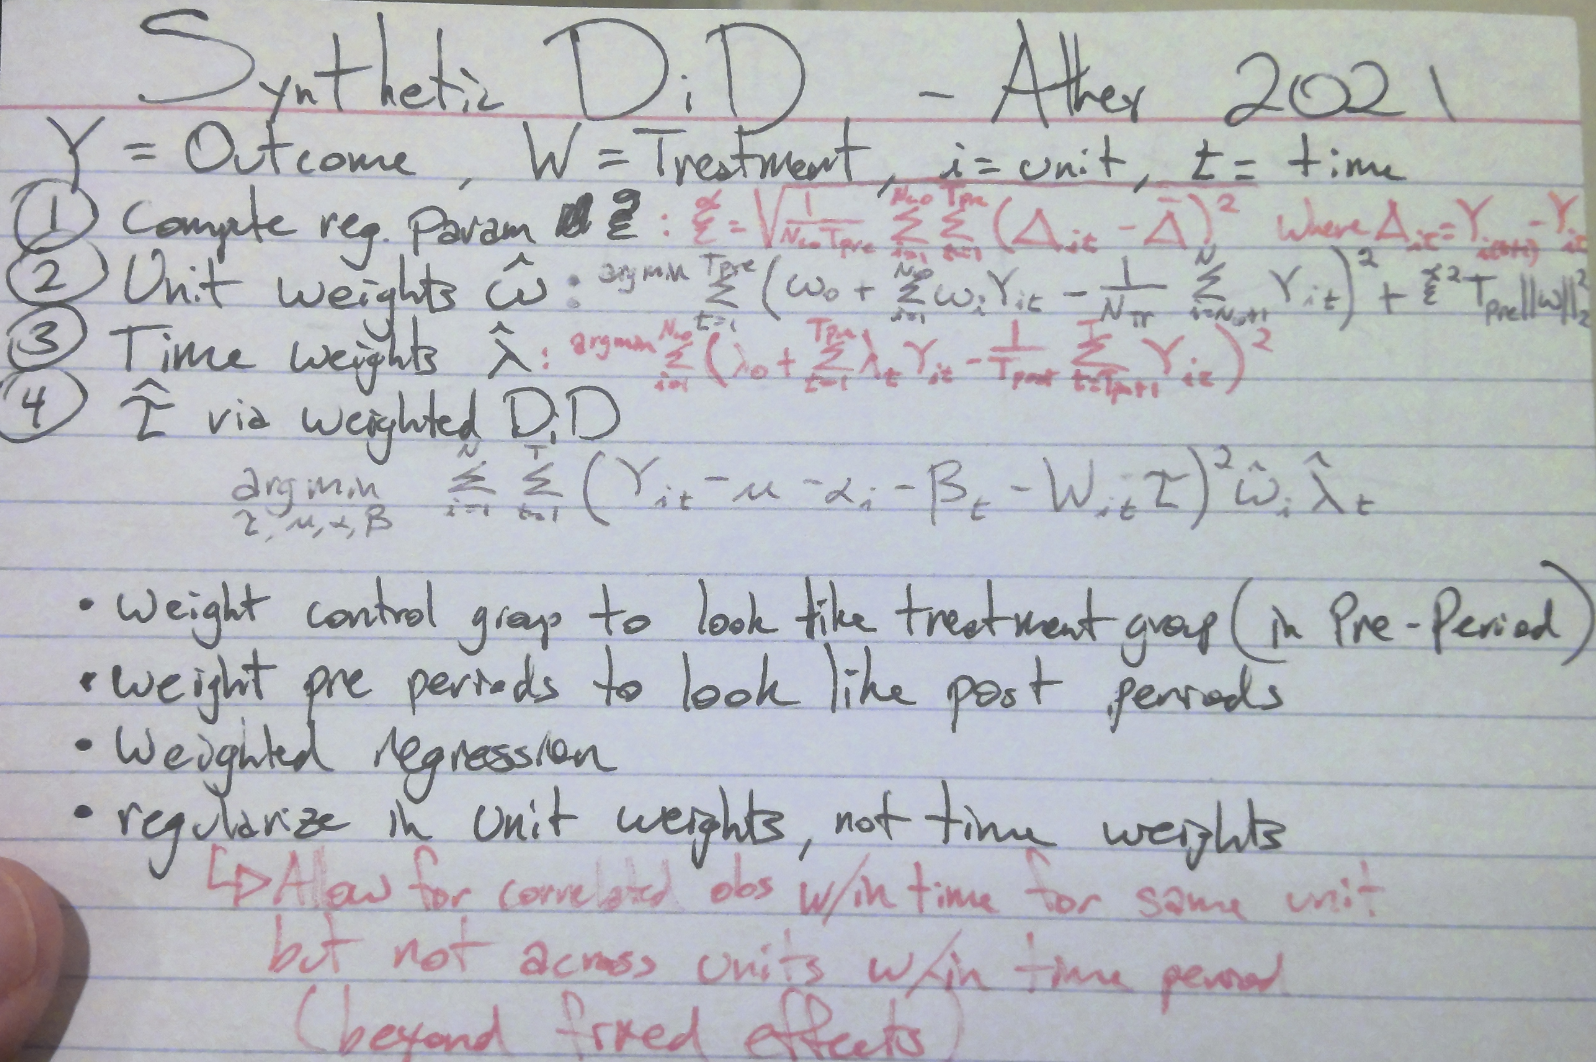 Synthetic DiD - Athey 2021
Y = Outcome, W = Treatment, i = unit, t = time
① Compute reg. param ξ : ξ = √(1/(N_co T_pre) Σ_{i=1}^{N_co} Σ_{t=1}^{T_pre} (Δ_it - Δ̄)²) where Δ_it = Y_i(t+1) - Y_it
② Unit weights ω̂ : argmin Σ_{t=1}^{T_pre} (ω_0 + Σ_{i=1}^{N_co} ω_i Y_it - 1/N_Tr Σ_{i=N_co+1}^{N} Y_it)² + ξ² T_pre ||ω||²_2
③ Time weights λ̂ : argmin Σ_{i=1}^{N_co} (λ_0 + Σ_{t=1}^{T_pre} λ_t Y_it - 1/T_post Σ_{t=T_pre+1}^{T} Y_it)²
④ τ̂ via weighted DiD
argmin_{τ, μ, α, β} Σ_{i=1}^{N} Σ_{t=1}^{T} (Y_it - μ - α_i - β_t - W_it τ)² ω̂_i λ̂_t
• Weight control group to look like treatment group (in Pre-Period)
• weight pre periods to look like post periods
• Weighted regression
• regularize in unit weights, not time weights
↳ Allow for correlated obs w/in time for same unit
but not across units w/in time period
(beyond fixed effects)